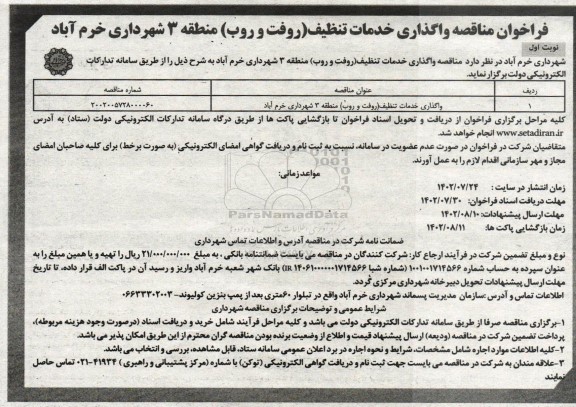 فراخوان مناقصه واگذاری خدمات تنظیف(روفت و روب) منطقه ۳ شهرداری خرم آباد
نوبت اول
شهرداری خرم آباد در نظر دارد مناقصه واگذاری خدمات تنظیف(روفت و روب) منطقه ۳ شهرداری خرم آباد به شرح ذیل را از طریق سامانه تدارکات
الکترونیکی دولت برگزار نماید.
ردیف عنوان مناقصه شماره مناقصه
۱ واگذاری خدمات تنظیف(روفت و روب) منطقه ۳ شهرداری خرم آباد ۲۰۰۲۰۰۵۷۲۸۰۰۰۰۶۰
کلیه مراحل برگزاری فراخوان از دریافت و تحویل اسناد فراخوان تا بازگشایی پاکت ها از طریق درگاه سامانه تدارکات الکترونیکی دولت (ستاد) به آدرس
www.setadiran.ir انجام خواهد شد.
متقاضیان شرکت در فراخوان در صورت عدم عضویت در سامانه، نسبت به ثبت نام و دریافت گواهی امضای الکترونیکی (به صورت برخط) برای کلیه صاحبان امضای
مجاز و مهر سازمانی اقدام لازم را به عمل آورند.
مواعد زمانی:
زمان انتشار در سایت : ۱۴۰۲/۰۷/۲۴
مهلت دریافت اسناد فراخوان: ۱۴۰۲/۰۷/۳۰
مهلت ارسال پیشنهادات: ۱۴۰۲/۰۸/۱۰
زمان بازگشایی پاکت ها: ۱۴۰۲/۰۸/۱۱
ParsNamadData
ضمانت نامه شرکت در مناقصه آدرس و اطلاعات تماس شهرداری
نوع و مبلغ تضمین شرکت در فرآیند ارجاع کار: شرکت کنندگان در مناقصه می بایست ضمانتنامه بانکی ، به مبلغ ۲۱/۰۰۰/۰۰۰/۰۰۰ ریال را تهیه و یا همین مبلغ را به
عنوان سپرده به حساب شماره ۱۰۰۱۰۰۱۷۱۴۵۶۶ (شماره شبا IR ۱۴۰۶۱۰۰۰۰۰۰۱۷۱۴۵۶۶) بانک شهر شعبه خرم آباد واریز و رسید آن در پاکت الف قرار داده، تا تاریخ
مهلت ارسال پیشنهادات تحویل دبیرخانه شهرداری مرکزی گردد.
اطلاعات تماس و آدرس :سازمان مدیریت پسماند شهرداری خرم آباد واقع در تیلوار ۶۰متری بعد از پمپ بنزین کولیوند- ۰۶۶۳۳۳۰۲۰۰۳
شرایط عمومی و توضیحات برگزاری مناقصه شهرداری
۱-برگزاری مناقصه صرفا از طریق سامانه تدارکات الکترونیکی دولت می باشد و کلیه مراحل فرآیند شامل خرید و دریافت اسناد (درصورت وجود هزینه مربوطه)،
پرداخت تضمین شرکت در مناقصه (ودیعه) ارسال پیشنهاد قیمت و اطلاع از وضعیت برنده بودن مناقصه گران محترم از این طریق امکان پذیر می باشد.
۲-کلیه اطلاعات موارد اجاره شامل مشخصات، شرایط و نحوه اجاره در برد اعلان عمومی سامانه ستاد، قابل مشاهده، بررسی و انتخاب می باشد.
۳-علاقه مندان به شرکت در مناقصه می بایست جهت ثبت نام و دریافت گواهی الکترونیکی (توکن) با شماره (مرکز پشتیبانی و راهبری ) ۴۱۹۳۴-۰۲۱ تماس حاصل
نمایند